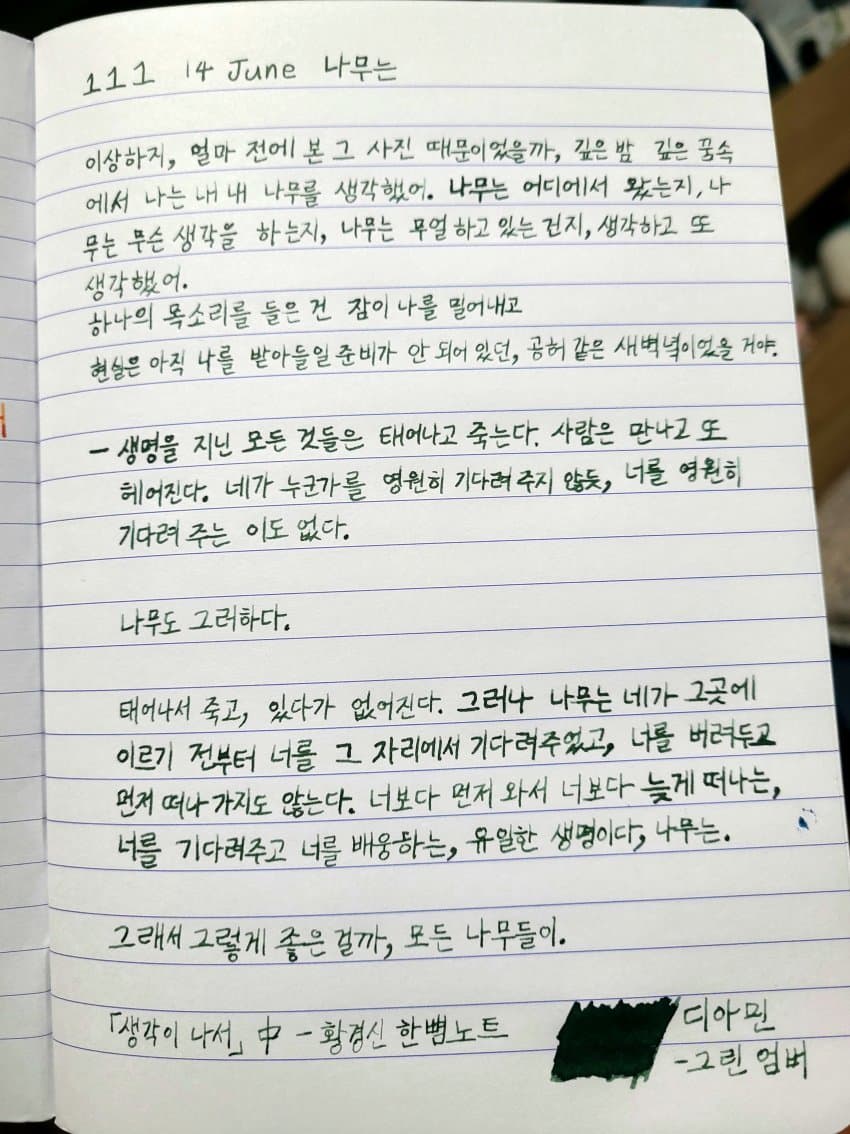 111 14 June 나무는
이상하지, 얼마 전에 본 그 사진 때문이었을까, 깊은 밤 깊은 꿈속
에서 나는 내내 나무를 생각했어. 나무는 어디에서 왔는지, 나
무는 무슨 생각을 하는지, 나무는 무얼 하고 있는 건지, 생각하고 또
생각했어.
하나의 목소리를 들은 건 잠이 나를 밀어내고
현실은 아직 나를 받아들일 준비가 안 되어 있던, 공허 같은 새벽녘이었을 거야.
- 생명을 지닌 모든 것들은 태어나고 죽는다. 사람은 만나고 또
헤어진다. 네가 누군가를 영원히 기다려 주지 않듯, 너를 영원히
기다려 주는 이도 없다.
나무도 그러하다.
태어나서 죽고, 있다가 없어진다. 그러나 나무는 네가 그곳에
이르기 전부터 너를 그 자리에서 기다려주었고, 너를 버려두고
먼저 떠나 가지도 않는다. 너보다 먼저 와서 너보다 늦게 떠나는,
너를 기다려주고 너를 배웅하는, 유일한 생명이다, 나무는.
그래서 그렇게 좋은 걸까, 모든 나무들이.
「생각이 나서」 中 - 황경신 한뼘노트
디아민
-그린 엄버